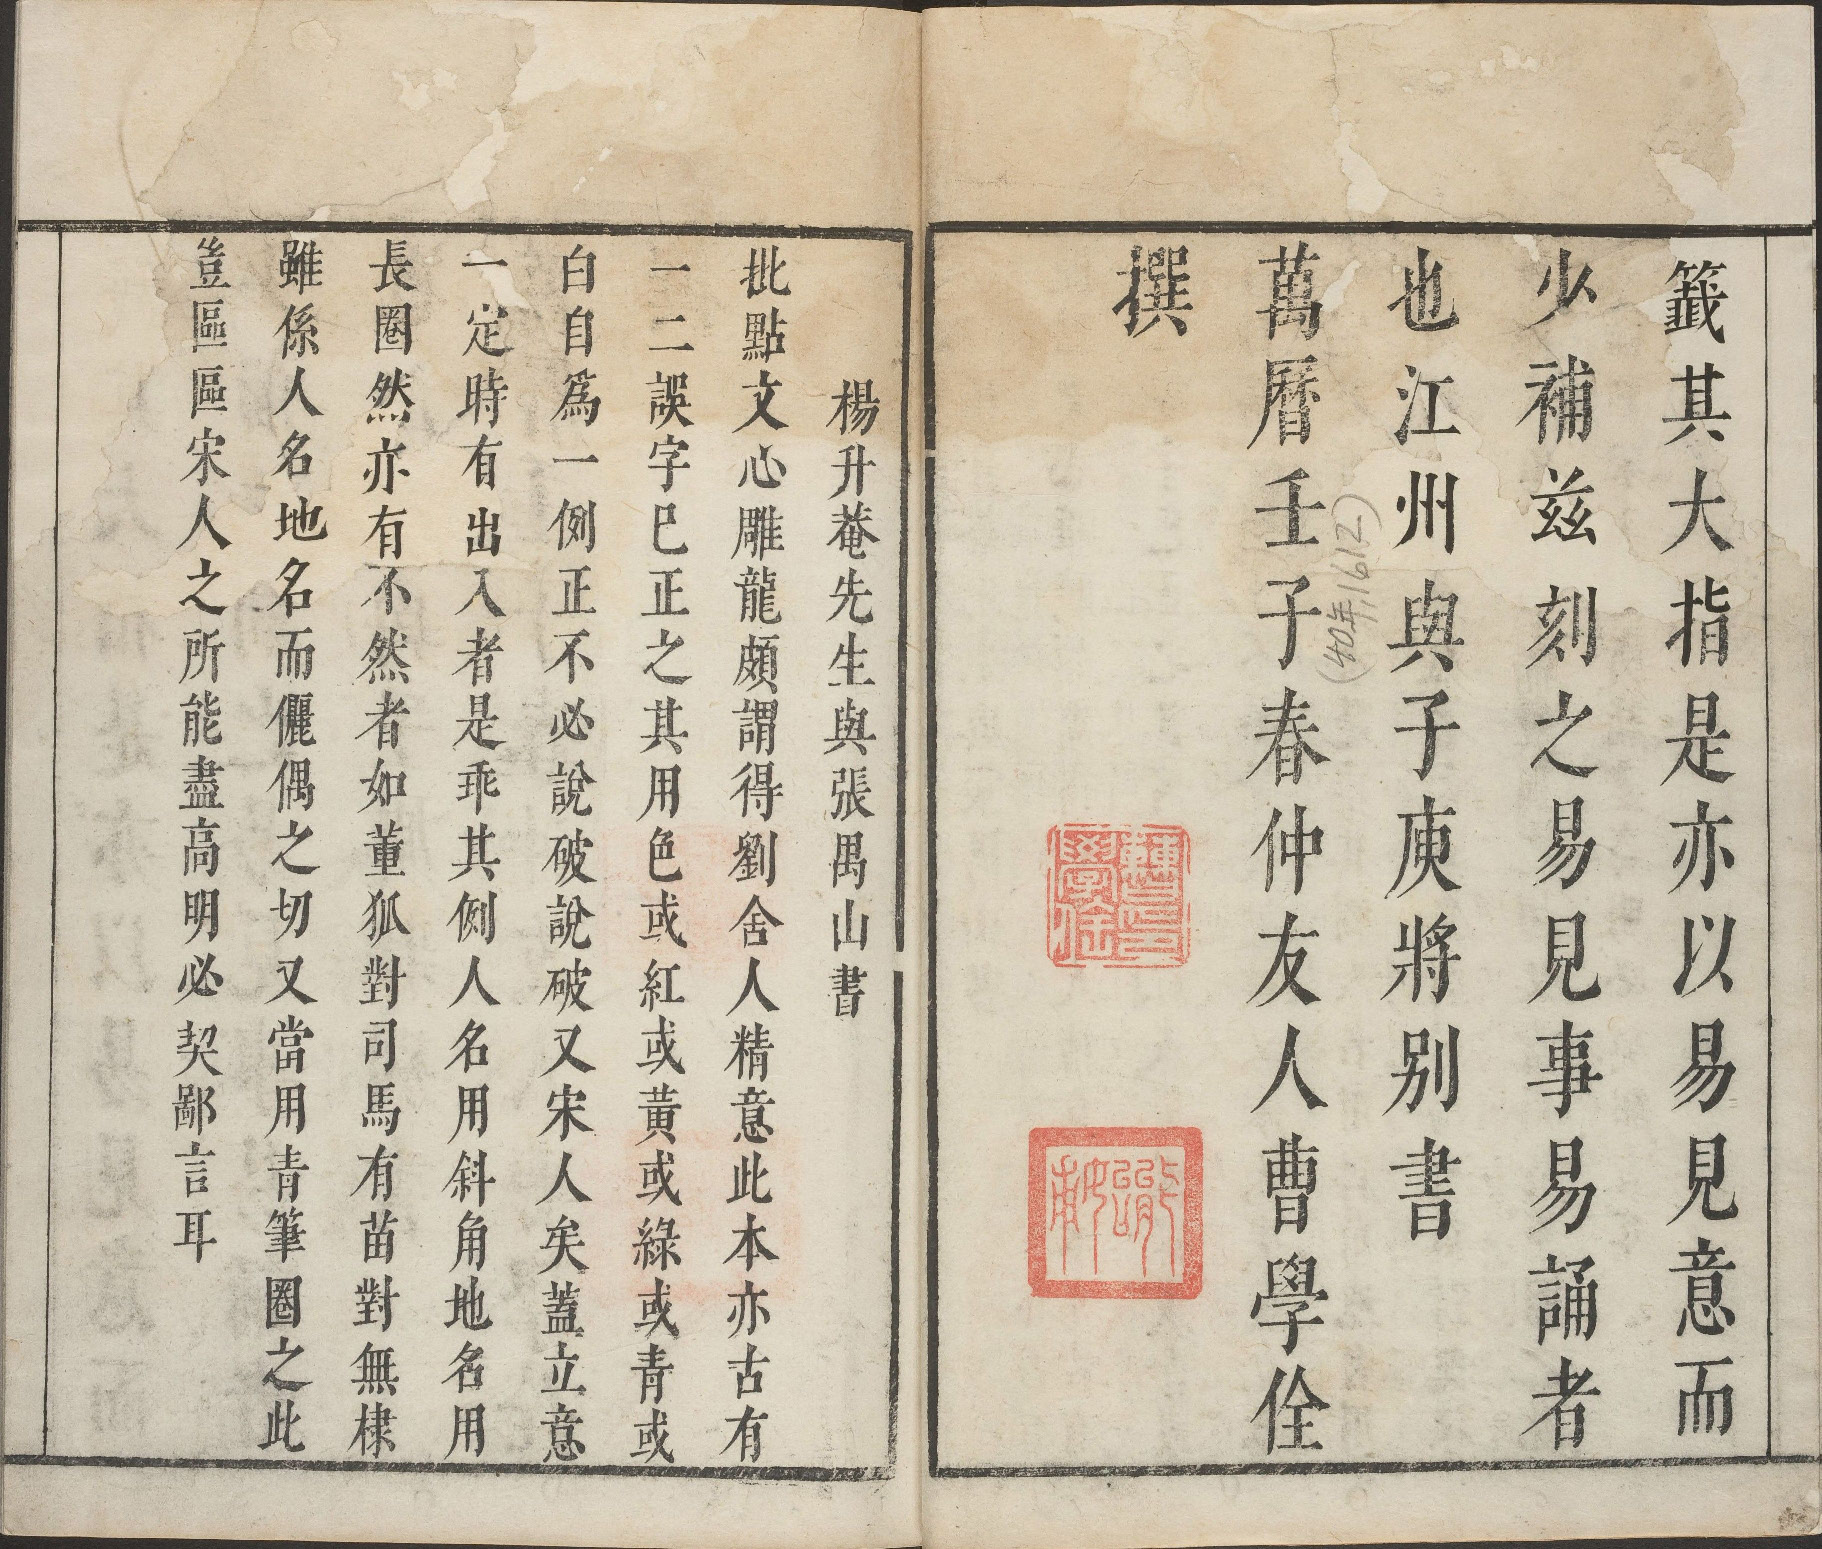 籤其大指是亦以易見意而
少補兹刻之易見事易誦者
也江州與子庾將别書
萬曆壬子春仲友人曹學佺
(40年,1612)
撰
楊升菴先生與張禺山書
批點文心雕龍頗謂得劉舍人精意此本亦古有
一二誤字已正之其用色或紅或黄或綠或青或
白自為一例正不必說破說破又宋人矣蓋立意
一定時有出入者是乖其例人名用斜角地名用
長圈然亦有不然者如董狐對司馬有苗對無棣
雖係人名地名而儷偶之切又當用青筆圈之此
豈區區宋人之所能盡高明必契鄙言耳